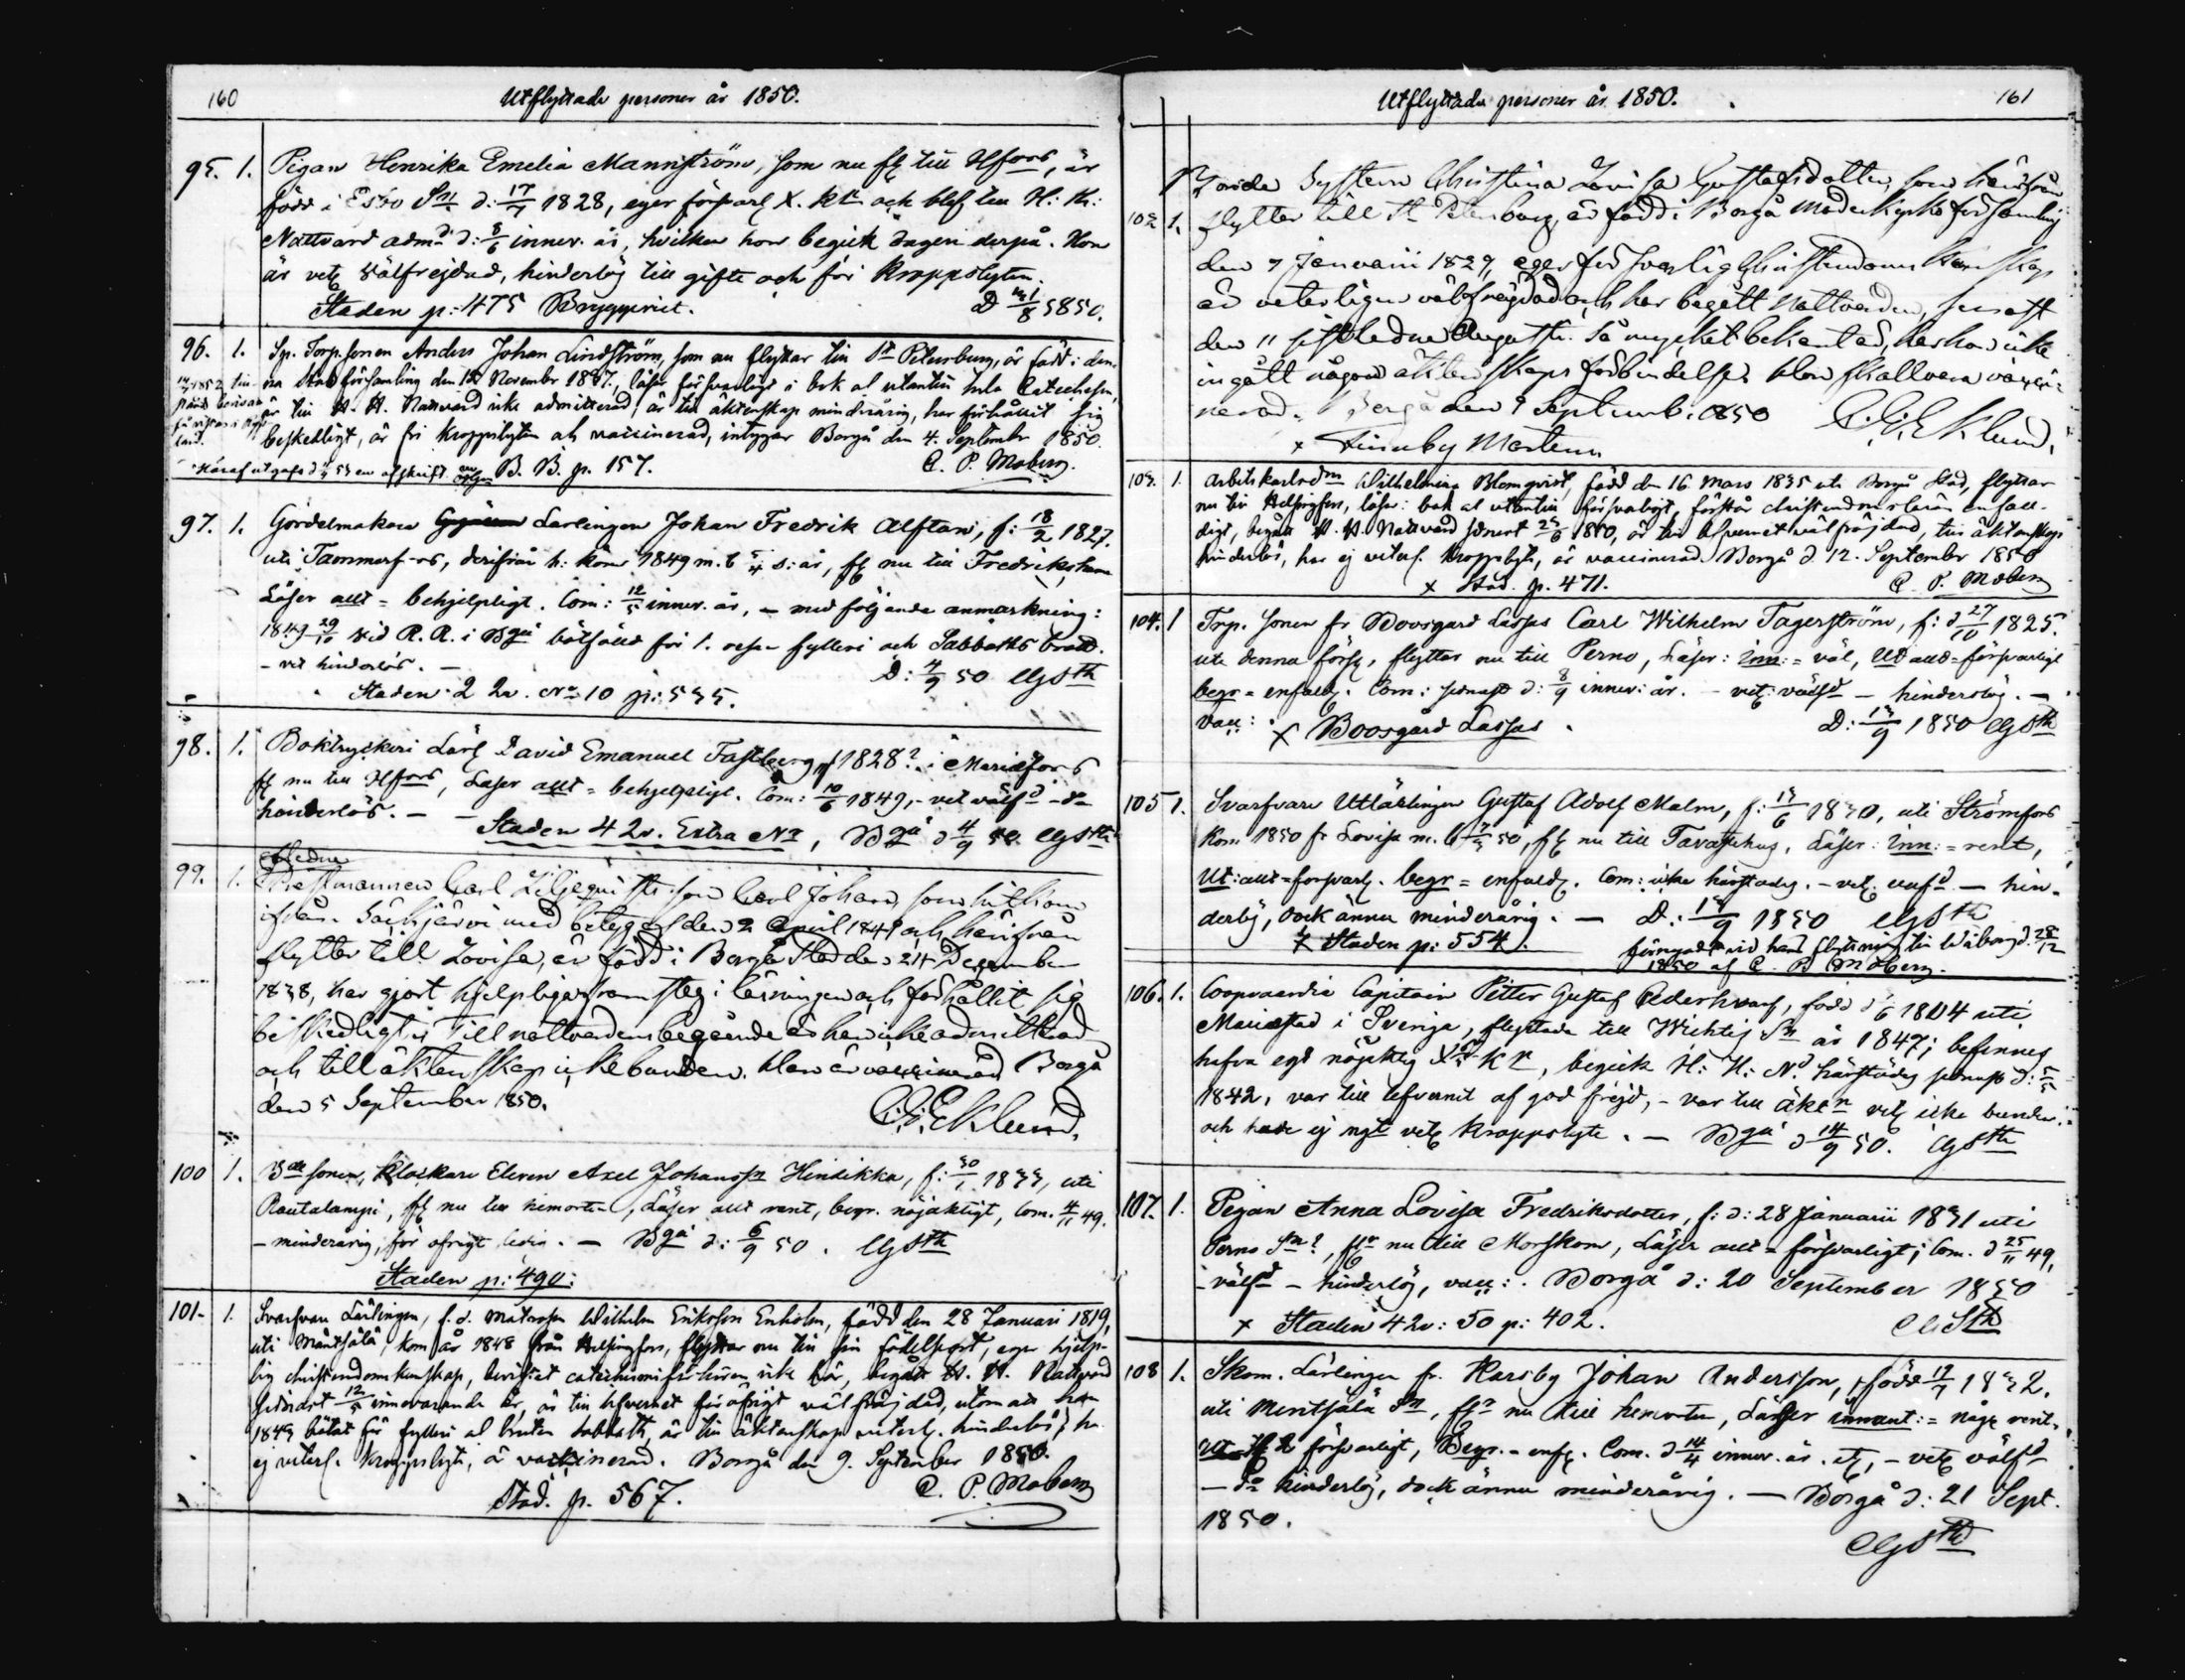 160
Utflyttade personer år 1850.
95. 1. Pigan Henrika Emelia Mannström, som nu fl till Hfors, är
född i Esbo Sn d: 17/7 1828, eger försvarl X. kn och blef till H: H:
Nattvard admd d: 8/6 innev. år, hvilken hon begick dagen derpå. Hon
är vetl välfrejdad, hinderlös till gifte och för kroppslyten.
Staden p: 475 Bryggeriet. D 31/8 1850.
96. 1. Sp. Torp.sonen Anders Johan Lindström, som nu flyttar till St Petersburg, är född i den-
na stadsförsamling den 12 November 1837, läser försvarligt i bok al utantill hela Catechesen,
är till H. H. Nattvard icke admitterad, är till äktenskap minderårig, har förhållit sig
beskedligt, är fri kroppslyten och vaccinerad, intygar Borgå den 4. September 1850.
Häraf utgafs en afskrift B. B. p. 157. C. P. Moberg.
97. 1. Gördelmakare Lärlingen Johan Fredrik Alftan, f: 18/2 1827.
uti Tammerf-rs, derifrån h: kom 1849 m. b 5/4 s: år, fl nu till Fredriksham
Läser allt = behjelpligt. Com: 12/5 innev. år, – med följande anmärkning:
1849 29/10 vid R. R. i Bgå bötfälld för 1. resan fylleri och Sabbaths brott.
– vet hinderlös. – D: 4/9 50 CGSth
Staden 2 qv. No 10 p: 535.
98. 1. Boktryckeri Lärl David Emanuel Fastberg f 1828? i Mariefors
fl nu till Hfors, Läser allt = behjelpligt. Com: 10/6 1849, – vet välfd – d–
hinderlös. – – Staden 4 qv. Extra No, Bgå d 4/9 50. CGSth
99. 1. Afledne
Carl Liljeqvists son Carl Johan, som hitkom
ifrån Säkjärvi med betyg af den 2 April 1849 och härifrån
flytter till Lovisa, är född i Borgå Stad den 24 December
1838, har gjort hjelpliga framsteg i läsningen och förhållit sig
beskedligt; Till nattvardens begående är han icke admitterad
och till äktenskap icke bunden. Han är vaccinerad Borgå
den 5 September 1850. C: G: Eklund.
100 1. Bde sonen, Klockare Eleven Axel Johansson Hindikka, f: 30/1 1833, uti
Rautalampi, fl nu till hemorten, Läser allt rent, begr. nöjaktigt, Com. 4/11 49.
– minderårig, för öfrigt ledig. – Bgå d: 6/9 50. CGSth
Staden p: 490:
101. 1. Svarfvare Lärlingen, f. d. Matrosen Wilhelm Eriksson Enholm, född den 28 Januari 1819,
uti Mäntsälä, kom år 1848 från Helsingfors, flyttar nu till sin födelseort, eger hjelp-
lig christendoms kunskap, bevistat catechismiförhören icke här, begått H. H. Nattvard
sednast 12/5 innevarande år, är till lefvernet för öfrigt välfrejdad, utom att han
1849 bötat för fylleri al bruten sabbath, är till äktenskap veterl. hinderlös, har
ej veterl. kroppslyte, är vaccinerad. Borgå den 9. September 1850.
Stad. p. 567. C. P. Moberg
Utflyttade personer år 1850.
161
102 1. Systern Christina Lovisa Gustafsdotter, som härifrån
flytter till St Petersburg, är född i Borgå Moderkyrko församling
den 7 Januarii 1829, eger försvarlig Christendoms kunskap
är veterligen välfrejdad och har begått Nattvarden, senast
den 11 sistledne Augusti. Så mycket bekant är, har hon icke
ingått någon äktenskaps förbindelse. Hon skall vara vaxxi-
nerad. Borgå den 9 Septemb. 1850 C. G. Eklund.
x Finnby Mårtens
103. 1. Arbetskarlsdn Wilhelmina Blomqvist, född den 16. Mars 1835 uti Borgå Stad, flyttar
nu till Helsingfors, läser i bok al utantill försvarligt, förstår christendomsläran enfal-
digt, begått H. H. Nattvard sednast 23/6 1850, är till lefvernet välfräjdad, till äktenskap
hinderlös, har ej veterl. kroppslyte, är vaccinerad. Borgå d. 12. September 1850
x Stad. p. 471. C. P. Moberg
104. 1 Torp. sonen fr Boosgård Lassas Carl Wilhelm Fagerström, f: d 27/10 1825.
uti denna förs, flyttar nu till Perno, Läser: Inn: = väl, Utall = försvarligt
begr = enfald. Com: senast d: 8/9 innev: år. – vet: välfd – hinderslös. –
vacc: x Boosgård Lassas. D: 13/9 1850 CGSth
105 1. Svarfvare Utlärlingen Gustaf Adolf Malm, f: 13/6 1830, uti Strömfors
Kom 1850 fr Lovisa m. b 7/3 50, fl nu till Tavastehus, Läser: Inn: = rent,
Ut: allt = försvarl. begr = enfald. Com: icke härstädes. – vet. välfd – hin-
derlös, dock ännu minderårig. – D: 13/9 1850 CGSth
x Staden p: 554. förnyadt vid hans flyttning till Wiborg d. 28/12
1850 af C. P. Moberg.
106. 1. Coopvaerdie Capitain Petter Gustaf Cederhvarf, född d 1/6 1804 uti
Mariestad i Sverige, flyttade till Wichtis Sn år 1847; befinnes
hafva egt nöjaktig X kp, begick H: H: Nd härstädes senast d: 5/5
1842, var till lefvernet af god frejd, – var till äktn vetl icke bunden
och hade ej ngt vetl kroppslyte. – Bgå d 14/9 50. CGSth
107. 1. Pigan Anna Lovisa Fredriksdotter, f: d: 28 Januarii 1831 uti
Perno Sn?, flr nu till Morskom, Läser allt = försvarligt; Com. d 25/11 49,
– välfd – hinderlös, vacc:. Borgå d: 20 September 1850
x Staden 4 qv: 50 p: 402. CGSth
108 1. Skom. Lärlingen fr. Karsby Johan Andersson, född 19/7 1832.
uti Mentsälä Sn, flr nu till hemorten, Läser innant: = någl rent.
försvarligt, Begr. = enf. Com. d 14/4 innev. år. – vetl välfd
– d– hinderlös, dock ännu minderårig. – Borgå d: 21 Sept.
1850.
CGSth